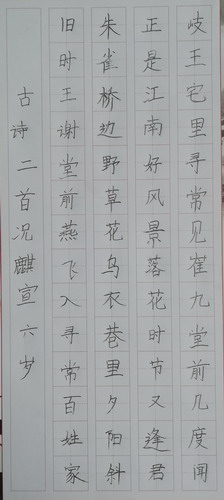 岐王宅里寻常见崔九堂前几度闻
正是江南好风景落花时节又逢君
朱雀桥边野草花乌衣巷里夕阳斜
旧时王谢堂前燕飞入寻常百姓家
古诗二首况麒宣六岁